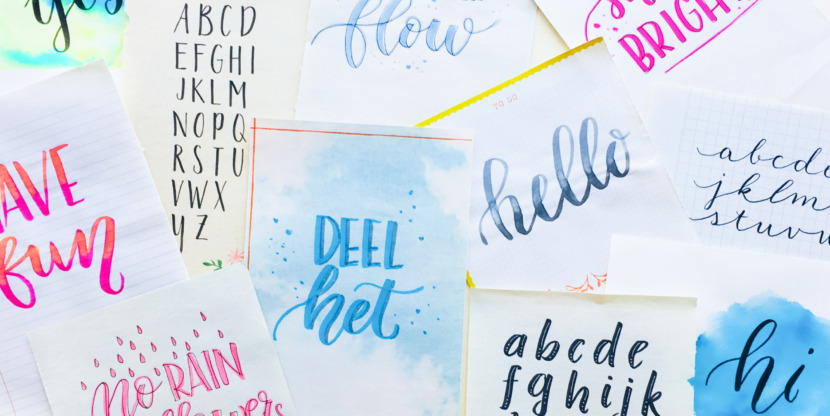 yes
ABCD
EFGHI
JKLM
NOPQ
RSTU
VWX
YZ
flow
BRIGH
TO DO
hello
abcde
jklm
stuv
HAVE
fun
DEEL
het
no RAIN
flowers
abcde
fghijk
hi